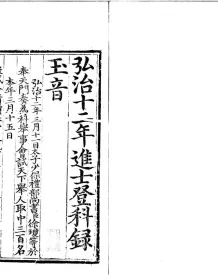 弘治十二年進士登科錄
玉音
弘治十二年三月十一日太子少保禮部尚書臣徐瓊等於
奉天門奏爲科舉事會試天下舉人取中三百名
本年三月十五日